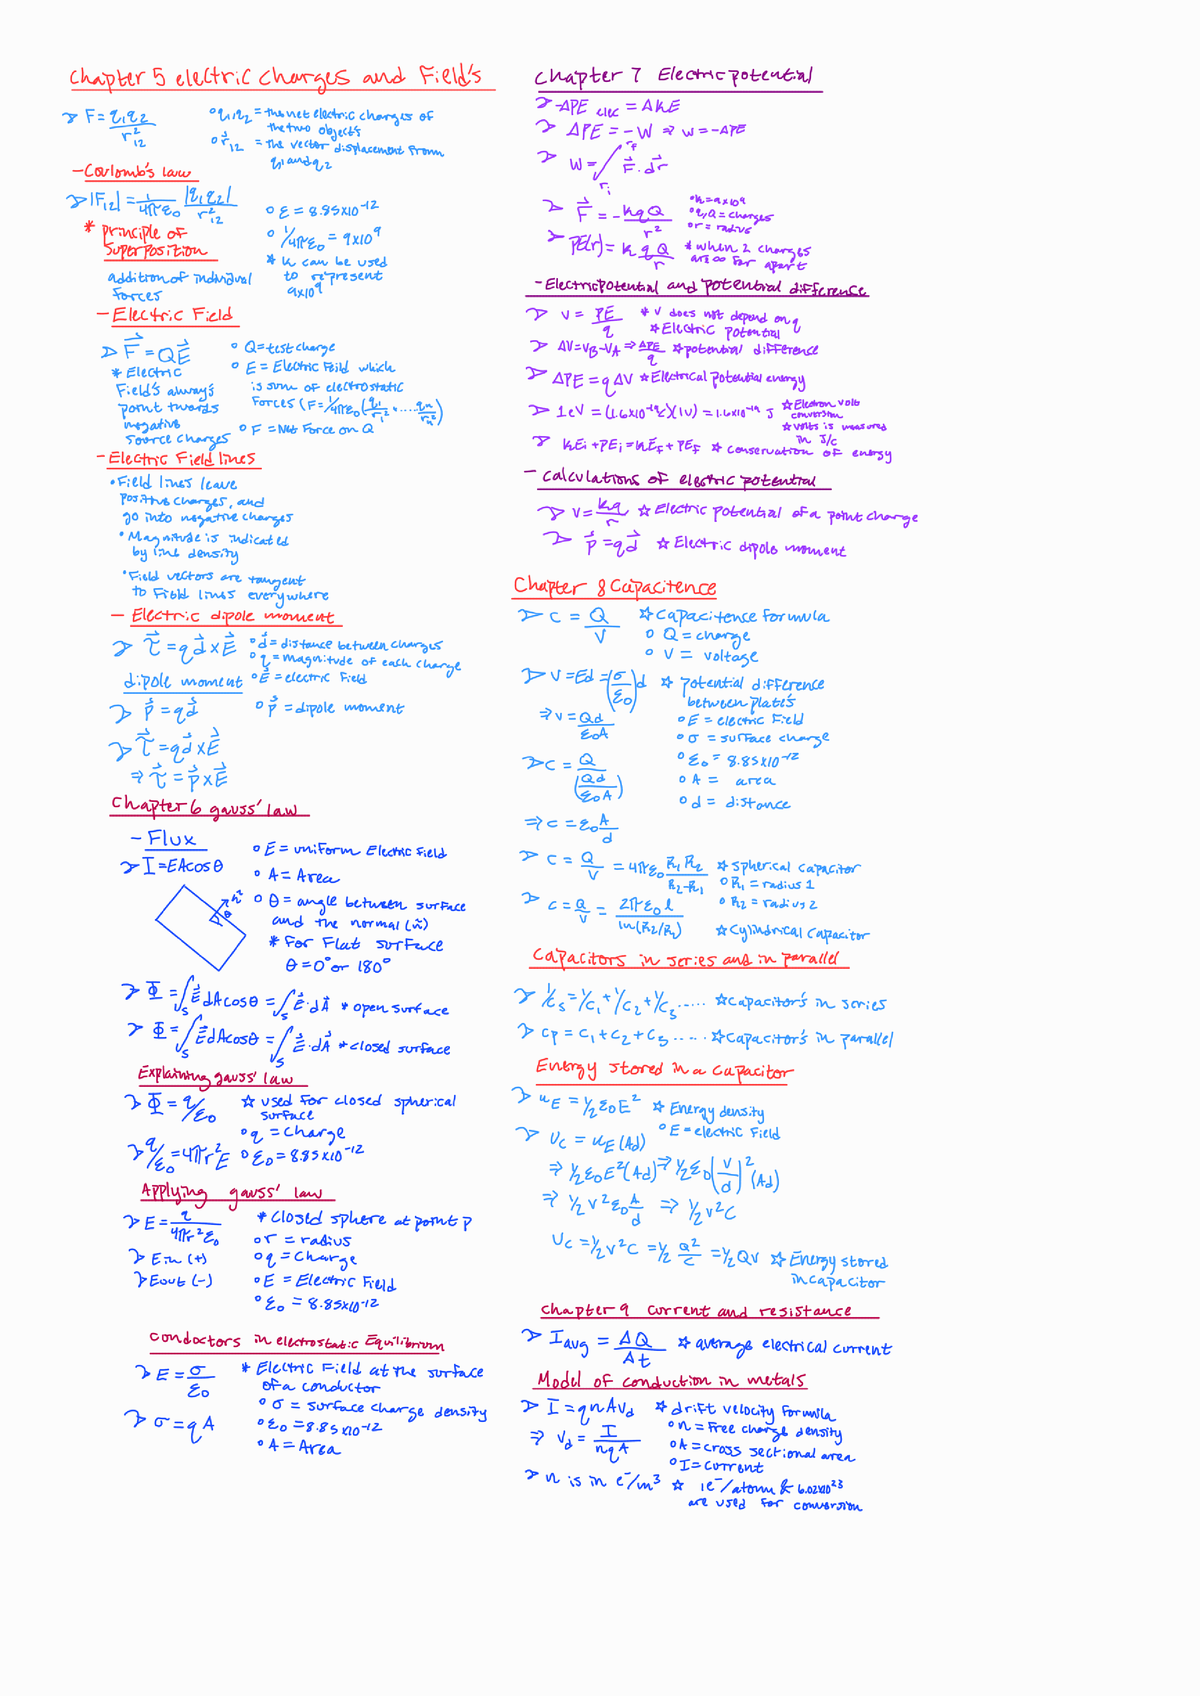 Chapter 5 electric charges and Field's
F = q1q2/r12^2
° q1,q2 = the net electric charges of
the two objects
° r⃗12 = the vector displacement from
q1 and q2
- Coulomb's law
|F12| = 1/4πε0 |q1q2|/r12^2
° ε = 8.85x10^-12
° 1/4πε0 = 9x10^9
* k can be used
to represent
9x10^9
* principle of
Superposition
addition of individual
Forces
- Electric Field
F⃗ = QE⃗
° Q = test charge
° E = Electric Feild which
is sum of electrostatic
Forces (F = 1/4πε0 (q1/r1^2 + ..... qn/rn^2)
° F = Net Force on Q
* Electric
Field's always
point twords
negative
source charges
- Electric Field lines
• Field lines leave
positive charges, and
go into negative charges
• Magnitude is indicated
by line density
• Field vectors are tangent
to Field lines everywhere
- Electric dipole moment
τ⃗ = qd⃗ x E⃗
° d⃗ = distance between charges
° q = magnitude of each charge
° E⃗ = electric Field
dipole moment
p⃗ = qd⃗
° p⃗ = dipole moment
τ⃗ = qd⃗ x E⃗
⇒ τ⃗ = p⃗ x E⃗
Chapter 6 gauss' law
- Flux
I = EAcosθ
° E = uniform Electric Field
° A = Area
n^
θ
° θ = angle between surface
and the normal (n̂)
* For Flat surface
θ = 0° or 180°
Φ = ∫s E⃗ dAcosθ = ∫s E⃗·dA⃗ * open surface
Φ = ∫s E⃗ dAcosθ = ∫s E⃗·dA⃗ * closed surface
Explaining gauss' law
Φ = q/ε0
☆ used for closed spherical
surface
° q = charge
q/ε0 = 4πr^2E
° ε0 = 8.85x10^-12
Applying gauss' law
E = q/4πr^2ε0
* closed sphere at point p
° r = radius
E in (+)
° q = charge
E out (-)
° E = Electric Field
° ε0 = 8.85x10^-12
conductors in electrostatic Equilibrium
E = σ/ε0
* Electric Field at the surface
of a conductor
° σ = surface charge density
σ = qA
° ε0 = 8.85x10^-12
° A = Area
Chapter 7 Electric potential
-ΔPE elec = ΔKE
ΔPE = -W ⇒ W = -ΔPE
W = ∫ri^rf F⃗·dr⃗
F⃗ = -kqQ/r^2
° k = 9x10^9
° q,Q = charges
° r = radius
PE(r) = k qQ/r
* when 2 charges
are ∞ far apart
- Electric potential and potential difference
V = PE/q
* V does not depend on q
☆ Electric potential
ΔV = VB - VA ⇒ ΔPE/q ☆ potential difference
ΔPE = qΔV ☆ Electrical potential energy
1eV = (1.6x10^-19C)(1V) = 1.6x10^-19 J
☆ Electron volt
conversion
☆ volts is measured
in J/C
KEi + PEi = KEf + PEf ☆ conservation of energy
- Calculations of electric potential
V = kq/r ☆ Electric potential of a point charge
p⃗ = qd⃗ ☆ Electric dipole moment
Chapter 8 Capacitence
C = Q/V
☆ Capacitence formula
° Q = charge
° V = voltage
V = Ed = (σ/ε0)d
☆ potential difference
between plate's
° E = electric Field
⇒ V = Qd/ε0A
° σ = surface charge
° ε0 = 8.85x10^-12
C = Q/(Qd/ε0A)
° A = area
° d = distance
⇒ C = ε0 A/d
C = Q/V = 4πε0 R1R2/R2-R1
☆ spherical capacitor
° R1 = radius 1
° R2 = radius 2
C = Q/V = 2πε0 l/ln(R2/R1)
☆ Cylindrical Capacitor
Capacitors in series and in parallel
1/Cs = 1/C1 + 1/C2 + 1/C3 ..... ☆ Capacitor's in series
Cp = C1 + C2 + C3 ..... ☆ Capacitor's in parallel
Energy stored in a capacitor
uE = 1/2 ε0E^2
☆ Energy density
° E = electric Field
UC = uE(Ad)
⇒ 1/2 ε0E^2(Ad) ⇒ 1/2 ε0 (V/d)^2 (Ad)
⇒ 1/2 V^2 ε0 A/d ⇒ 1/2 V^2C
UC = 1/2 V^2C = 1/2 Q^2/C = 1/2 QV ☆ Energy stored
in capacitor
Chapter 9 current and resistance
Iavg = ΔQ/Δt ☆ average electrical current
Model of conduction in metals
I = qnAvd
☆ drift velocity formula
° n = Free charge density
⇒ vd = I/nqA
° A = cross sectional area
° I = current
n is in e^-/m^3
☆ 1e^-/atom & 6.02x10^23
are used for conversion